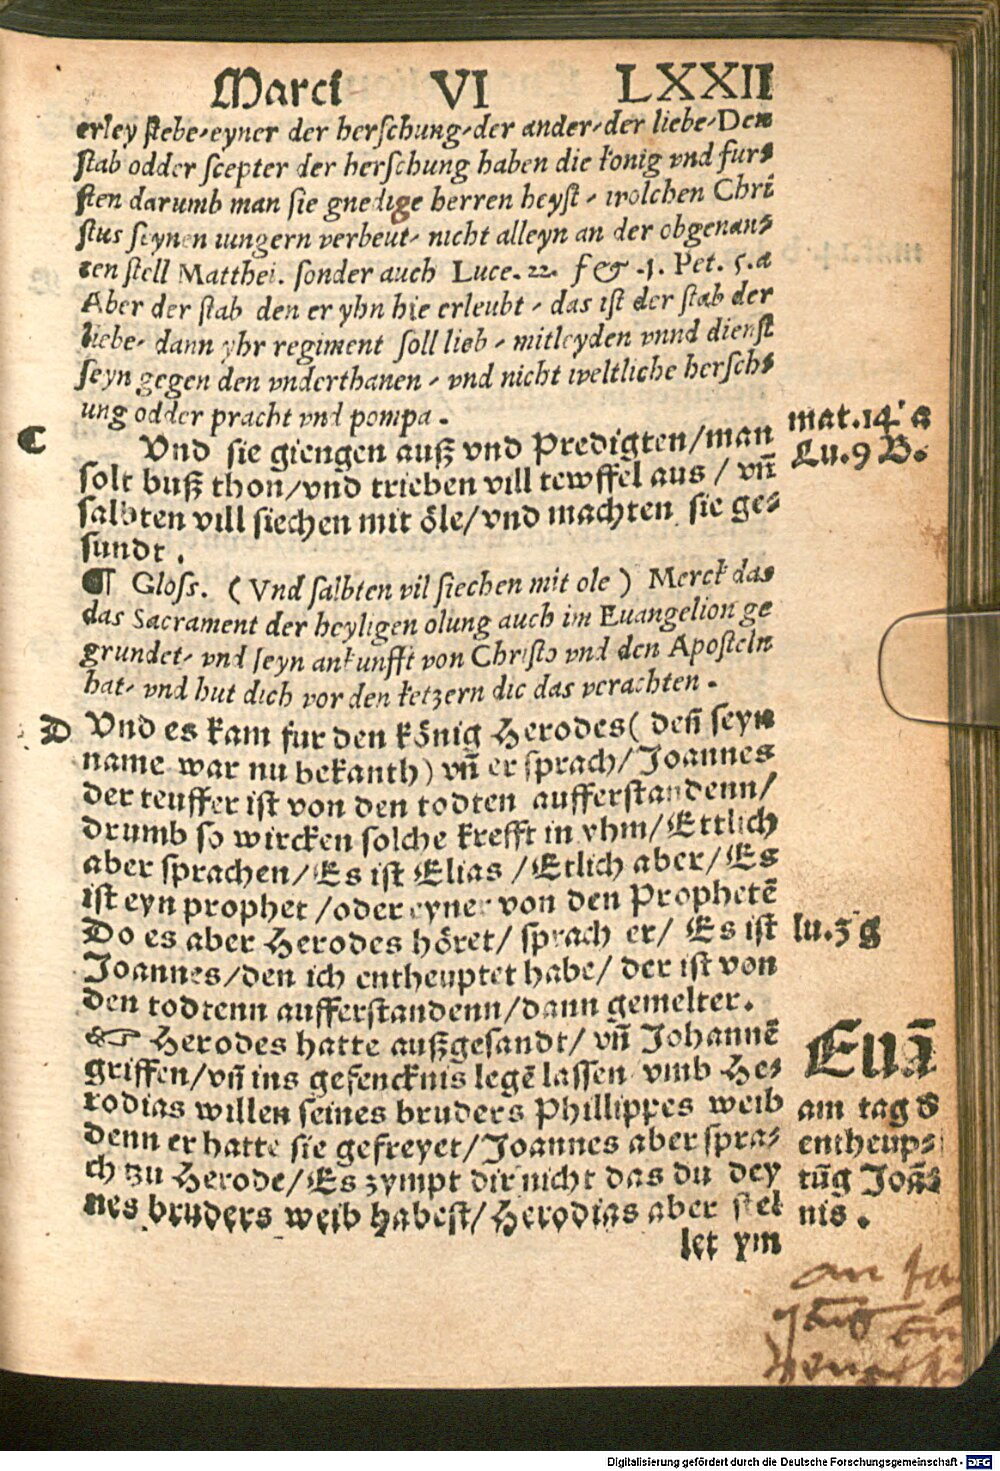 Marci VI LXXII
erley stebe/eyner der herschung/der ander/der liebe/Den
stab odder scepter der herschung haben die konig vnd furs
sten darumb man sie gnedige herren heyst/ wolchen Chri
stus seynen iungern verbeut/ nicht alleyn an der obgenan⸗
ten stell Matthei. sonder auch Luce. 22. f & .1. Pet. 5.a
Aber der stab den er yhn hie erleubt/ das ist der stab der
liebe/ dann yhr regiment soll lieb/ mitleyden vnnd dienst
seyn gegen den vnderthanen/ vnd nicht weltliche hersch⸗
ung odder pracht vnd pompa.
C
Vnd sie giengen auß vnd Predigten/man
mat.14 a
solt buß thon/vnd trieben vill tewffel aus/ vñ
Lu.9 B.
salbten vill siechen mit öle/vnd machten sie ge⸗
sundt.
¶ Gloss. (Vnd salbten vil siechen mit ole) Merck das
das Sacrament der heyligen olung auch im Euangelion ge
grundet/ vnd seyn ankunfft von Christo vnd den Aposteln
hat/ vnd hut dich vor den ketzern die das verachten.
D Vnd es kam fur den könig Herodes( deñ seyn
name war nu bekanth) vñ er sprach/Joannes
der teuffer ist von den todten aufferstandenn/
drumb so wircken solche krefft in yhm/Ettlich
aber sprachen/Es ist Elias/Etlich aber/Es
ist eyn prophet/oder eyner von den Prophetē
Do es aber Herodes höret/ sprach er/ Es ist
lu.3 g
Joannes/den ich entheuptet habe/ der ist von
den todtenn aufferstandenn/dann gemelter.
☞ Herodes hatte außgesandt/ vñ Johannē
Euā
griffen/vñ ins gefencknis legē lassen vmb He⸗
rodias willen seines bruders Phillippes weib
am tag d
denn er hatte sie gefreyet/Joannes aber spra⸗
entheup⸗
ch tzu Herode/Es zympt dir nicht das du dey
tūg Joā⸗
nes bruders weib habest/Herodias aber stel
nis.
let ym
an
Digitalisierung gefördert durch die Deutsche Forschungsgemeinschaft - DFG